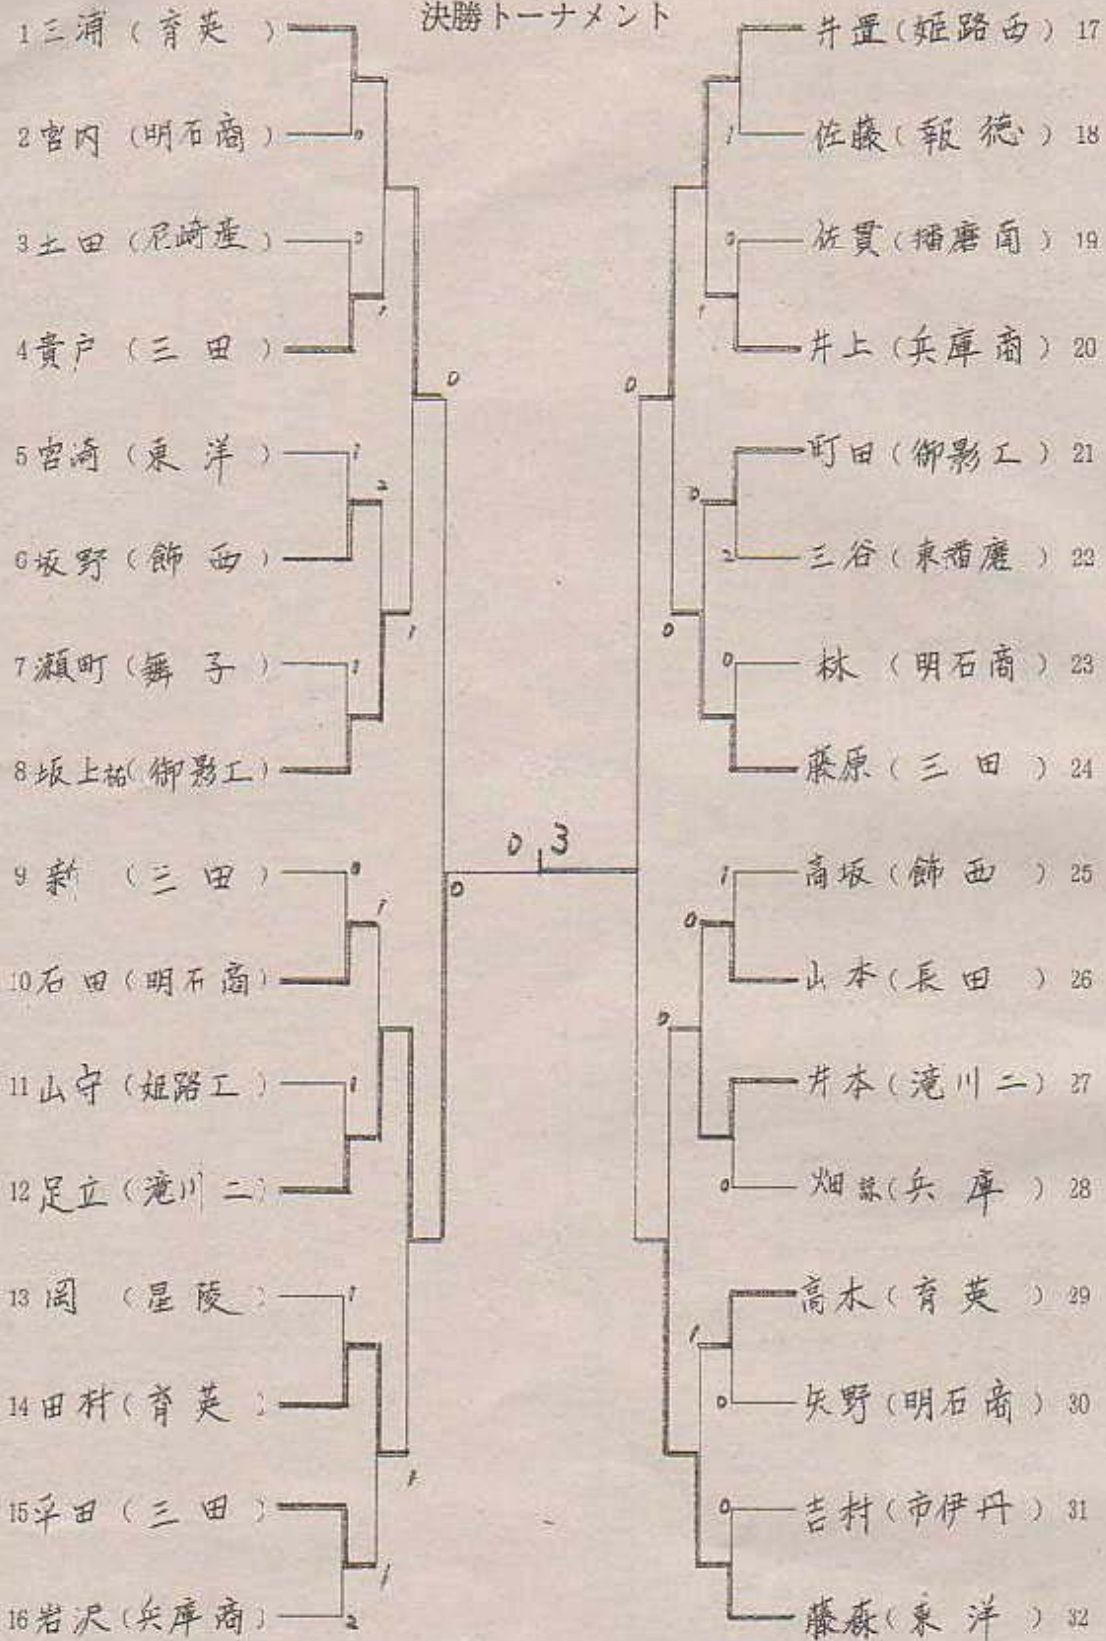 決勝トーナメント
1 三浦 (育英)
0
2 宮内 (明石商)
3 土田 (尼崎産)
0
1
4 貴戸 (三田)
0
5 宮崎 (東洋)
1
2
6 坂野 (飾西)
1
7 瀬町 (舞子)
1
8 坂上祐 (御影工)
9 新 (三田)
0
1
10 石田 (明石商)
0
11 山守 (姫路工)
1
12 足立 (滝川二)
13 岡 (星陵)
1
14 田村 (育英)
1
15 平田 (三田)
1
16 岩沢 (兵庫商)
2
0 3
井置 (姫路西) 17
1
佐藤 (報徳) 18
0
佐貫 (播磨南) 19
1
井上 (兵庫商) 20
0
町田 (御影工) 21
0
2
三谷 (東播磨) 22
0
0
林 (明石商) 23
藤原 (三田) 24
1
高坂 (飾西) 25
0
山本 (長田) 26
0
井本 (滝川二) 27
0
畑 (兵庫) 28
高木 (育英) 29
1
0
矢野 (明石商) 30
0
吉村 (市伊丹) 31
藤森 (東洋) 32